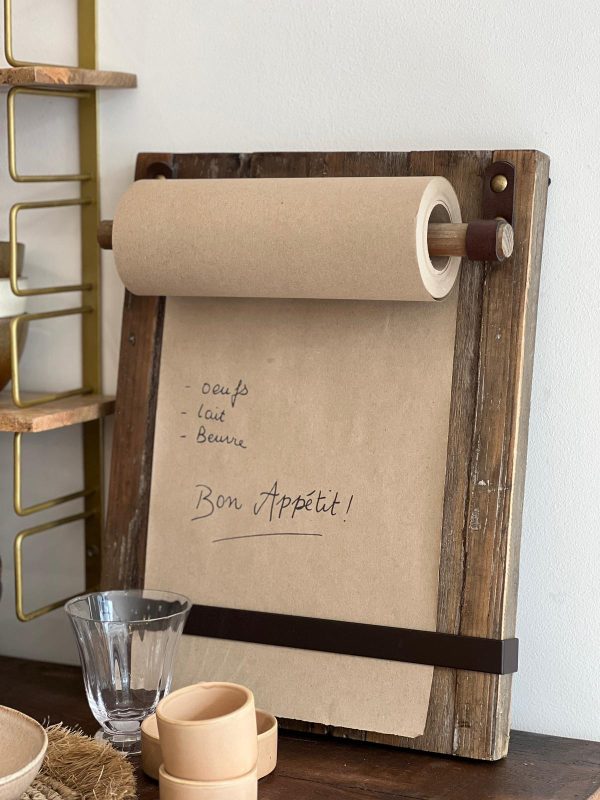 - oeufs
- lait
- Beurre
Bon Appétit!